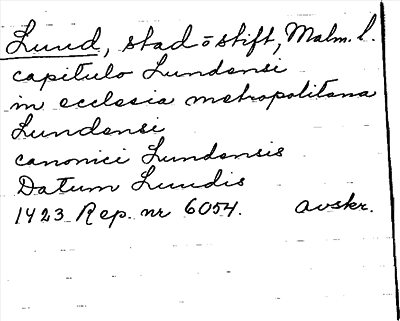 Lund, stad o stift, Malm. l.
capitulo Lundensi
in ecclesia metropolitana
Lundensi
canonici Lundensis
Datum Lundis
1423 Rep. nr 6054. avskr.